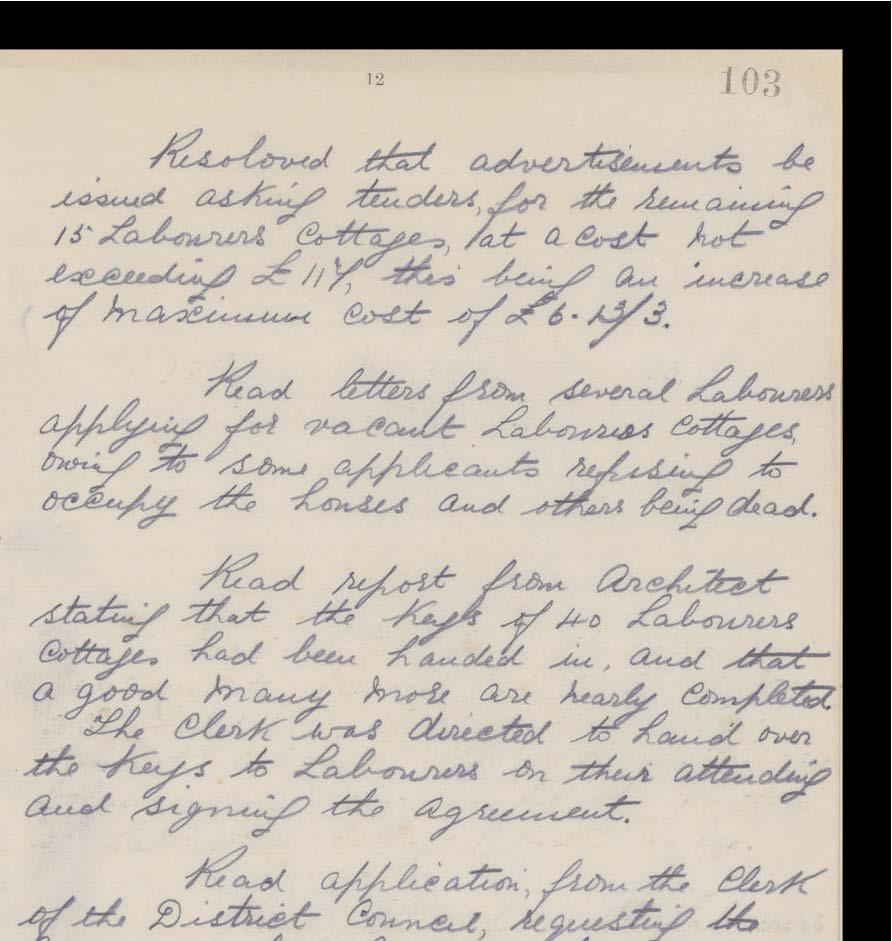 12
103
Resoloved that advertisements be
issued asking tenders, for the remaining
15 Labourers Cottages, at a cost not
exceeding £ this being an increase
of maximum cost of £6-13/3.
Read letters from several Labourers
applying for vacant Labourers Cottages,
owing to some applicants refusing to
occupy the houses and others being dead.
Read report from Architect
stating that the Keys of 40 Labourers
Cottages had been handed in, and that
a good many more are nearly completed.
The Clerk was directed to hand over
the Keys to Labourers on their attending
and signing the agreement.
Read application, from the Clerk
of the District Council, requesting the